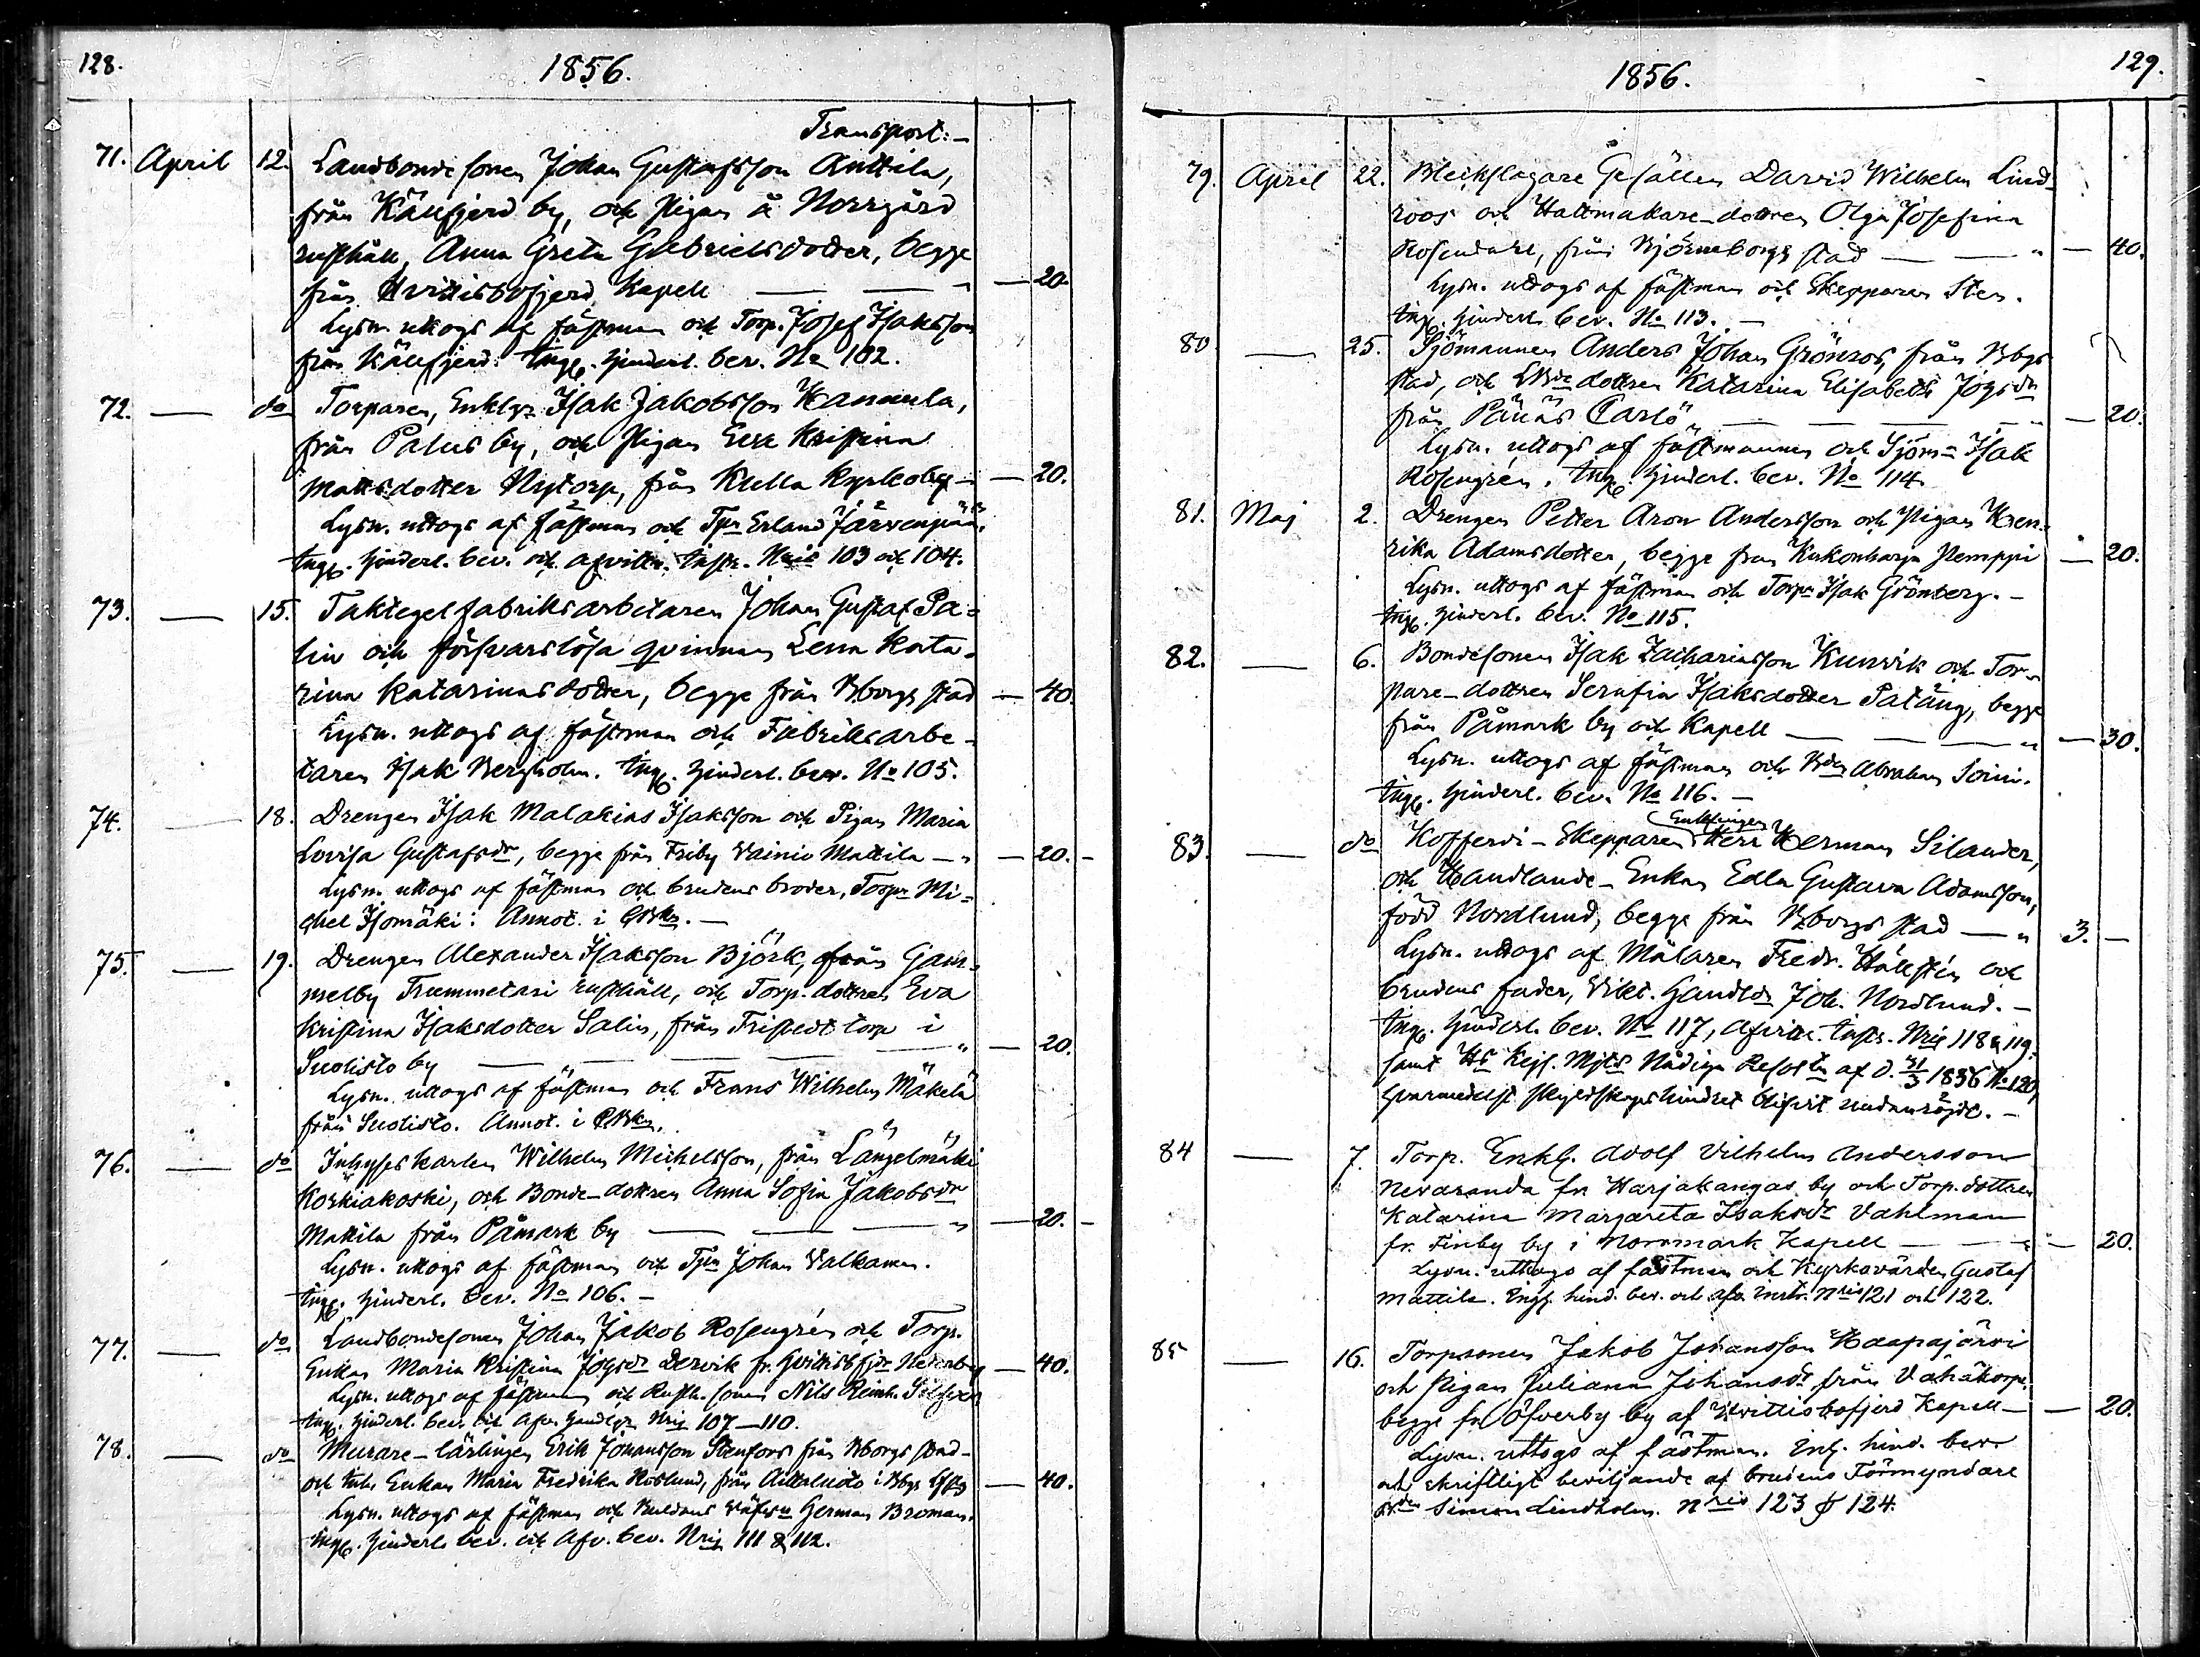 128.
1856.
Transport:-
71. April 12. Landbonde sonen Johan Gustafsson Anttila,
från Källfjerd by, och Pigan å Norrgård
rusthåll, Anna Greta Gabrielsdotter, begge
från Hvittisbofjerd Kapell — — " — 20.
Lysn. uttogs af fästman och Torp. Josef Isaksson
från Källfjerd. Ingg. hinderl. bev. No 102.
72. — do Torparen, Enklgn Isak Jakobsson Hannula,
från Palus by, och Pigan Eva Kristina
Mattsdotter Nytorp, från Kulla Kyrkoby — 20.
Lysn. uttogs af fästman och Tpn Erland Järvenpää.
Ingg. hinderl. bev. och afvittr. instr. Nris 103 och 104.
73. — 15. Taktegelfabriksarbetaren Johan Gustaf Pa=
lin och försvarslösa qvinnan Lena Kata=
rina Katarinasdotter, begge från Bborgs stad — 40.
Lysn. uttogs af fästman och Fabriksarbe-
taren Isak Bergholm. Ingg. hinderl. bev. No 105.
74. — 18. Drengen Isak Malakias Isaksson och Pigan Maria
Lovisa Gustafsdr, begge från Friby Vainio Mattila — " — 20. -
Lysn. uttogs af fästman och brudens broder, Torpn Mi=
chel Isomäki: Annot. i
75. — 19. Drengen Alexander Isaksson Björk, från Gam=
melby Trummetari rusthåll, och Torp. dottren Eva
Kristina Isaksdotter Salin, från Fristedt torp i
Suolisto by — — — — " — 20.
Lysn. uttogs af fästman och Frans Wilhelm Mäkelä
från Suolisto. Annot. i
76. — do Inhyseskarlen Wilhelm Michelsson, från Längelmäki
Koskiakoski, och Bonde-dottren Anna Sofia Jakobsdr
Mattila från Påmark by — — — " — 20. -
Lysn. uttogs af fästman och Tpn Johan Valkamen.
Ingg. hinderl. bev. No 106. -
77. — do Landbondesonen Johan Jakob Rosengrén och Torp.
Enkan Maria Kristina Dervik fr. Hvittisbfjrd Nederby — 40.
Lysn. uttogs af fästman och Rusth. sonen Nils Reinh.
Ingg. hinderl. bev. och Afv. Nris 107—110.
78. — do Murare-lärlingen Erik Johansson Stenfors från Bborgs stad-
och Enkan Maria Fredrika Roslund, från i — 40.
Lysn. uttogs af fästman och Herman Broman.
Ingg. hinderl. bev. och Afv. bev. Nris 111 & 112.
129.
1856.
79. April 22. Bleckslagare Gesällen David Wilhelm Lind-
roos och Hattmakare-dottren Olga Josefina
Rosendahl, från Björneborgs stad — — " — 40.
Lysn. uttogs af fästman och Skepparen Sten.
Ingg. hinderl. bev. No 113. -
80. — 25. Sjömannen Anders Johan Grönros, från Bbgs
stad, och dottren Katarina Elisabeth
från Pänäs Carlö — — — — 20.
Lysn. uttogs af fästmannen och Sjöm= Isak
Rosengrén. Ingg. hinderl. bev. No 114.
81. Maj 2. Drengen Petter Aron Andersson och Pigan Hen=
rika Adamsdotter, begge från Kukonharja Nemppi — 20.
Lysn. uttogs af fästman och Torpn Isak Grönberg. -
Ingg. hinderl. bev. No 115.
82. — 6. Bondesonen Isak Zachariasson Kunvik och Tor-
pare-dottren Serafia Isaksdotter Patäng, begge
från Påmark by och Kapell — — — " — 30.
Lysn. uttogs af fästman och Bdn Abraham Soini.
Ingg. hinderl. bev. No 116. -
Enklingen
83. — do Kofferdi-Skepparen Herr Herman Silander,
och Handlande-Enkan Edla Gustava Adamsson,
född Nordlund, begge från Bborgs stad — " 3. —
Lysn. uttogs af Målaren Fredr. Hällstén och
brudens fader, Vikt. Handldn Joh. Nordlund. -
Ingg. hinderl. bev. No 117, Afvittr. instr. Nris 118 & 119.
samt Hs Kejs. Mjts Nådiga Resoltn af d. 31/3 1856 No 120,
hvarmedelst skyldskapshindret blifvit undanröjdt. -
84 — 7. Torp. Enkl. Adolf Vilhelm Andersson
Nevaranda fr. Harjakangas by och Torp. dottren
Katarina Margareta Isaksdr Vahlman
fr. Finby by i Norrmark Kapell — — " — 20.
Lysn. uttogs af fästman och Kyrkovärden Gustaf
Mattila. Ingg. hind. bev. och afv. instr. Nris 121 och 122.
85 — 16. Torpsonen Jakob Johansson Haapajärvi
och Pigan Juliana Johansdr från Vahäkorpi,
begge fr. Öfverby by af Hvittisbofjerd Kapell — — 20.
Lysn. uttogs af fästman. Ing. hind. bev.
och skriftligt beviljande af brudens Förmyndare
Bdn Simon Lindholm. Nris 123 & 124.